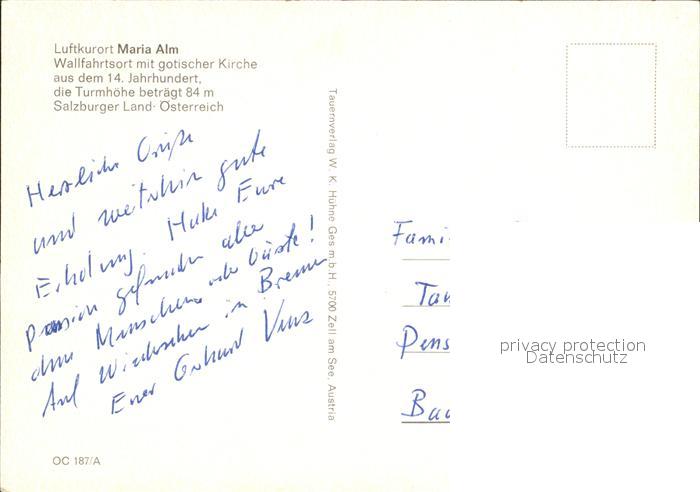 Luftkurort Maria Alm
Wallfahrtsort mit gotischer Kirche
aus dem 14. Jahrhundert,
die Turmhöhe beträgt 84 m
Salzburger Land · Österreich
Herzliche Grüße
und weiterhin gute
Erholung. Habe Eure
Pension gefunden aber
ohne Menschen oder Gäste!
Auf Wiedersehen in Bremen
Euer Gerhard
Tauernverlag W. K. Hühne Ges. m. b. H., 5700 Zell am See, Austria
Fami
Tan
Pens
Bad
privacy protection
Datenschutz
OC 187/A